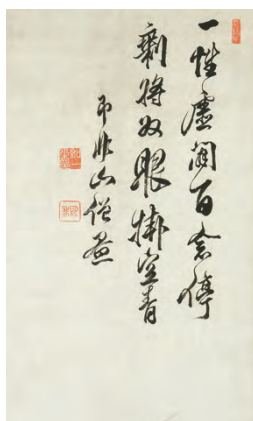 一性虚閑百念停
剩將双眼掛空青
即非山僧